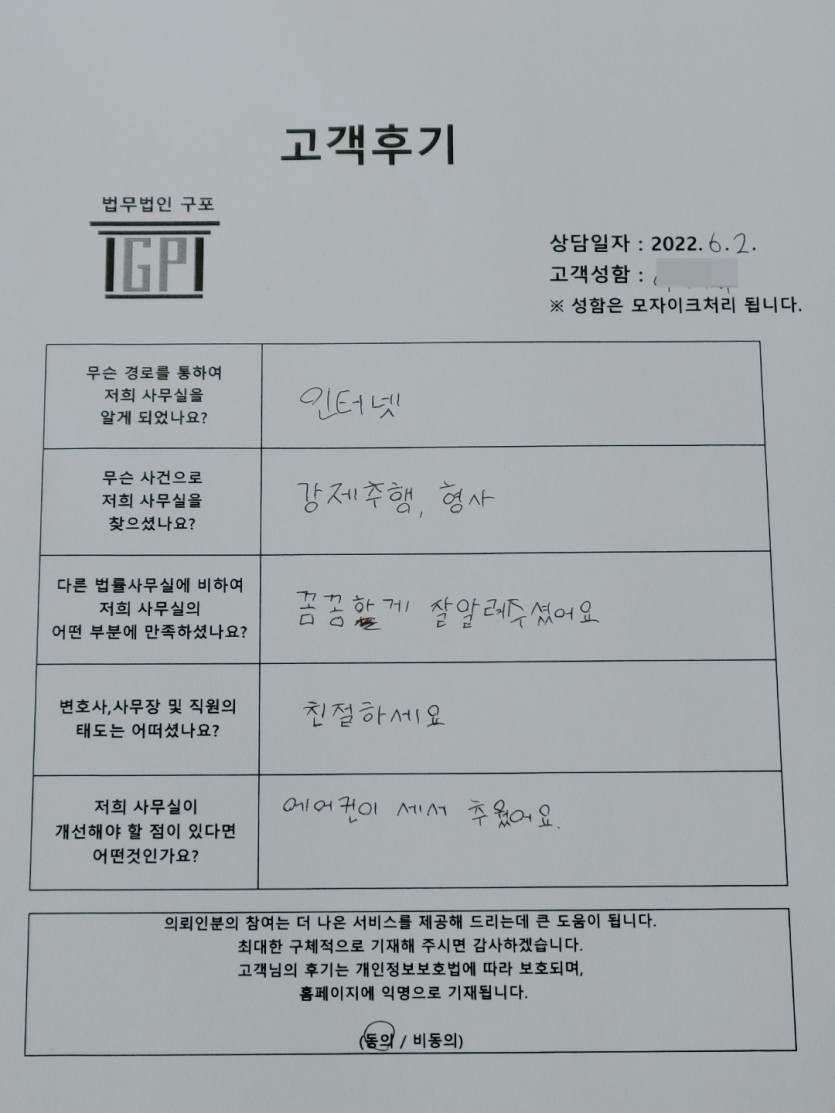 고객후기
법무법인 구포
IGPI
상담일자 : 2022. 6. 2.
고객성함 :
※ 성함은 모자이크처리 됩니다.
무슨 경로를 통하여
저희 사무실을
알게 되었나요?
인터넷
무슨 사건으로
저희 사무실을
찾으셨나요?
강제추행, 형사
다른 법률사무실에 비하여
저희 사무실의
어떤 부분에 만족하셨나요?
꼼꼼하게 잘알려주셨어요
변호사,사무장 및 직원의
태도는 어떠셨나요?
친절하세요
저희 사무실이
개선해야 할 점이 있다면
어떤것인가요?
에어컨이 세서 추웠어요.
의뢰인분의 참여는 더 나은 서비스를 제공해 드리는데 큰 도움이 됩니다.
최대한 구체적으로 기재해 주시면 감사하겠습니다.
고객님의 후기는 개인정보보호법에 따라 보호되며,
홈페이지에 익명으로 기재됩니다.
(동의 / 비동의)